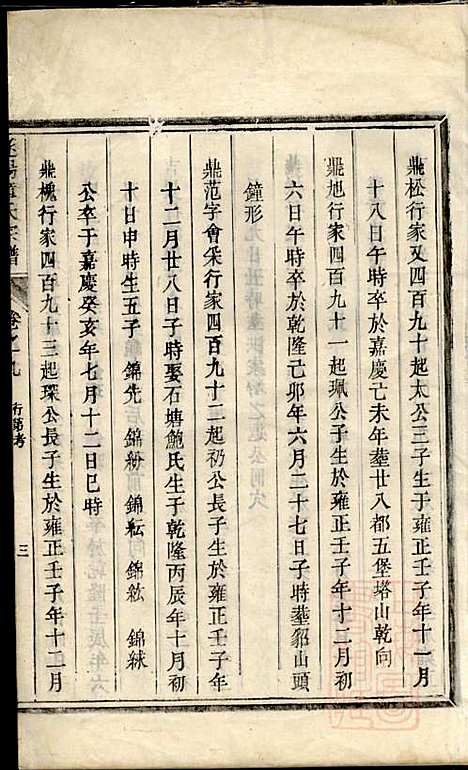 鼎松行家又四百九十起太公三子生于雍正壬子年十一月
十八日午時卒於嘉慶己未年塟廿八都五堡塔山乾向
鼎旭行家四百九十一起珮公子生於雍正壬子年十二月初
六日午時卒於乾隆己卯年六月二十七日子時塟貂山頭
鐘形
鼎范字會采行家四百九十二起礽公長子生於雍正壬子年
十二月廿八日子時娶石塘鮑氏生于乾隆丙辰年十月初
十日申時生五子 錦先 錦紛 錦紜 錦紘 錦絿
公卒于嘉慶癸亥年七月十二日巳時
鼎槐行家四百九十三起琛公長子生於雍正壬子年十二月
氏宗譜 卷之九 行第考 三